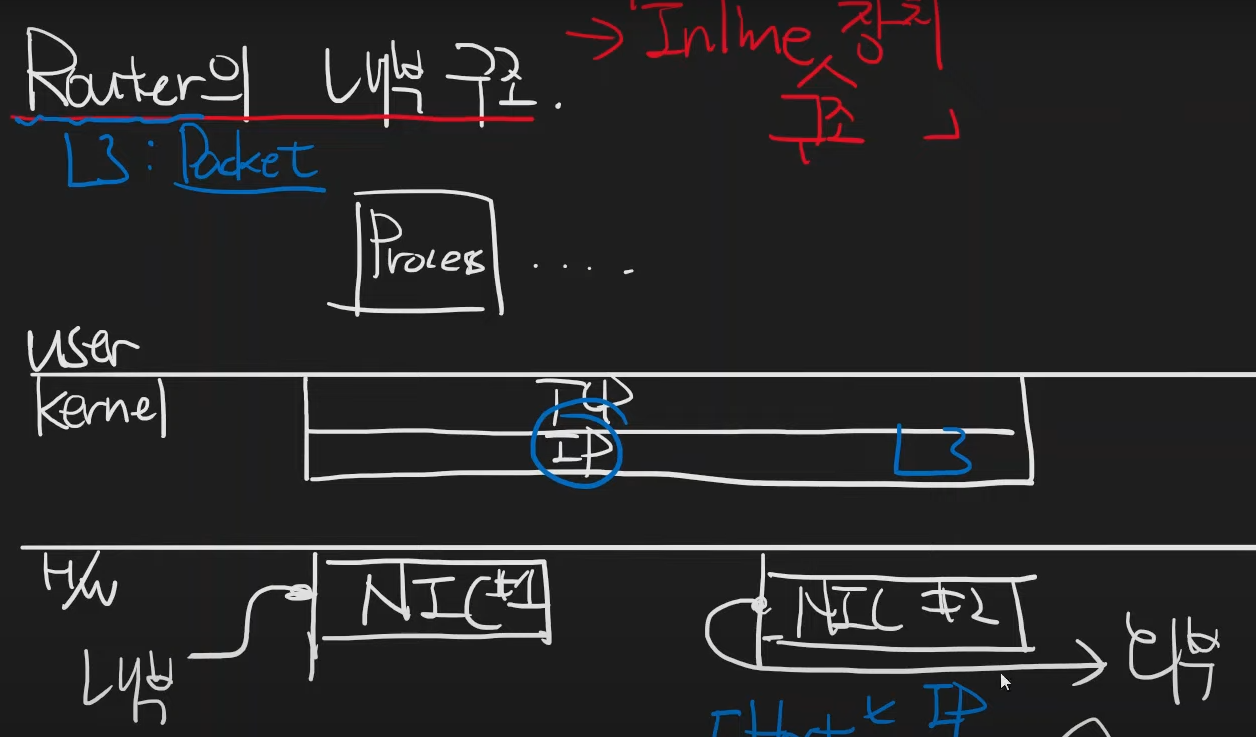 Router의 내부 구조.
→ Inline 장치
구조
L3: Packet
Process .....
User
Kernel
TCP
IP
L3
H/W
NIC #1
NIC #2
내부
외부
IP